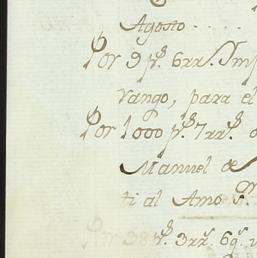 Agosto . . . .
Por 9 p.s 6 rr.s Imp
vango, para el
Por 1000 p.s 7 rr.s
Manuel de
ti al Amo
Por 38 p.s 3 rr.s 6 g.s